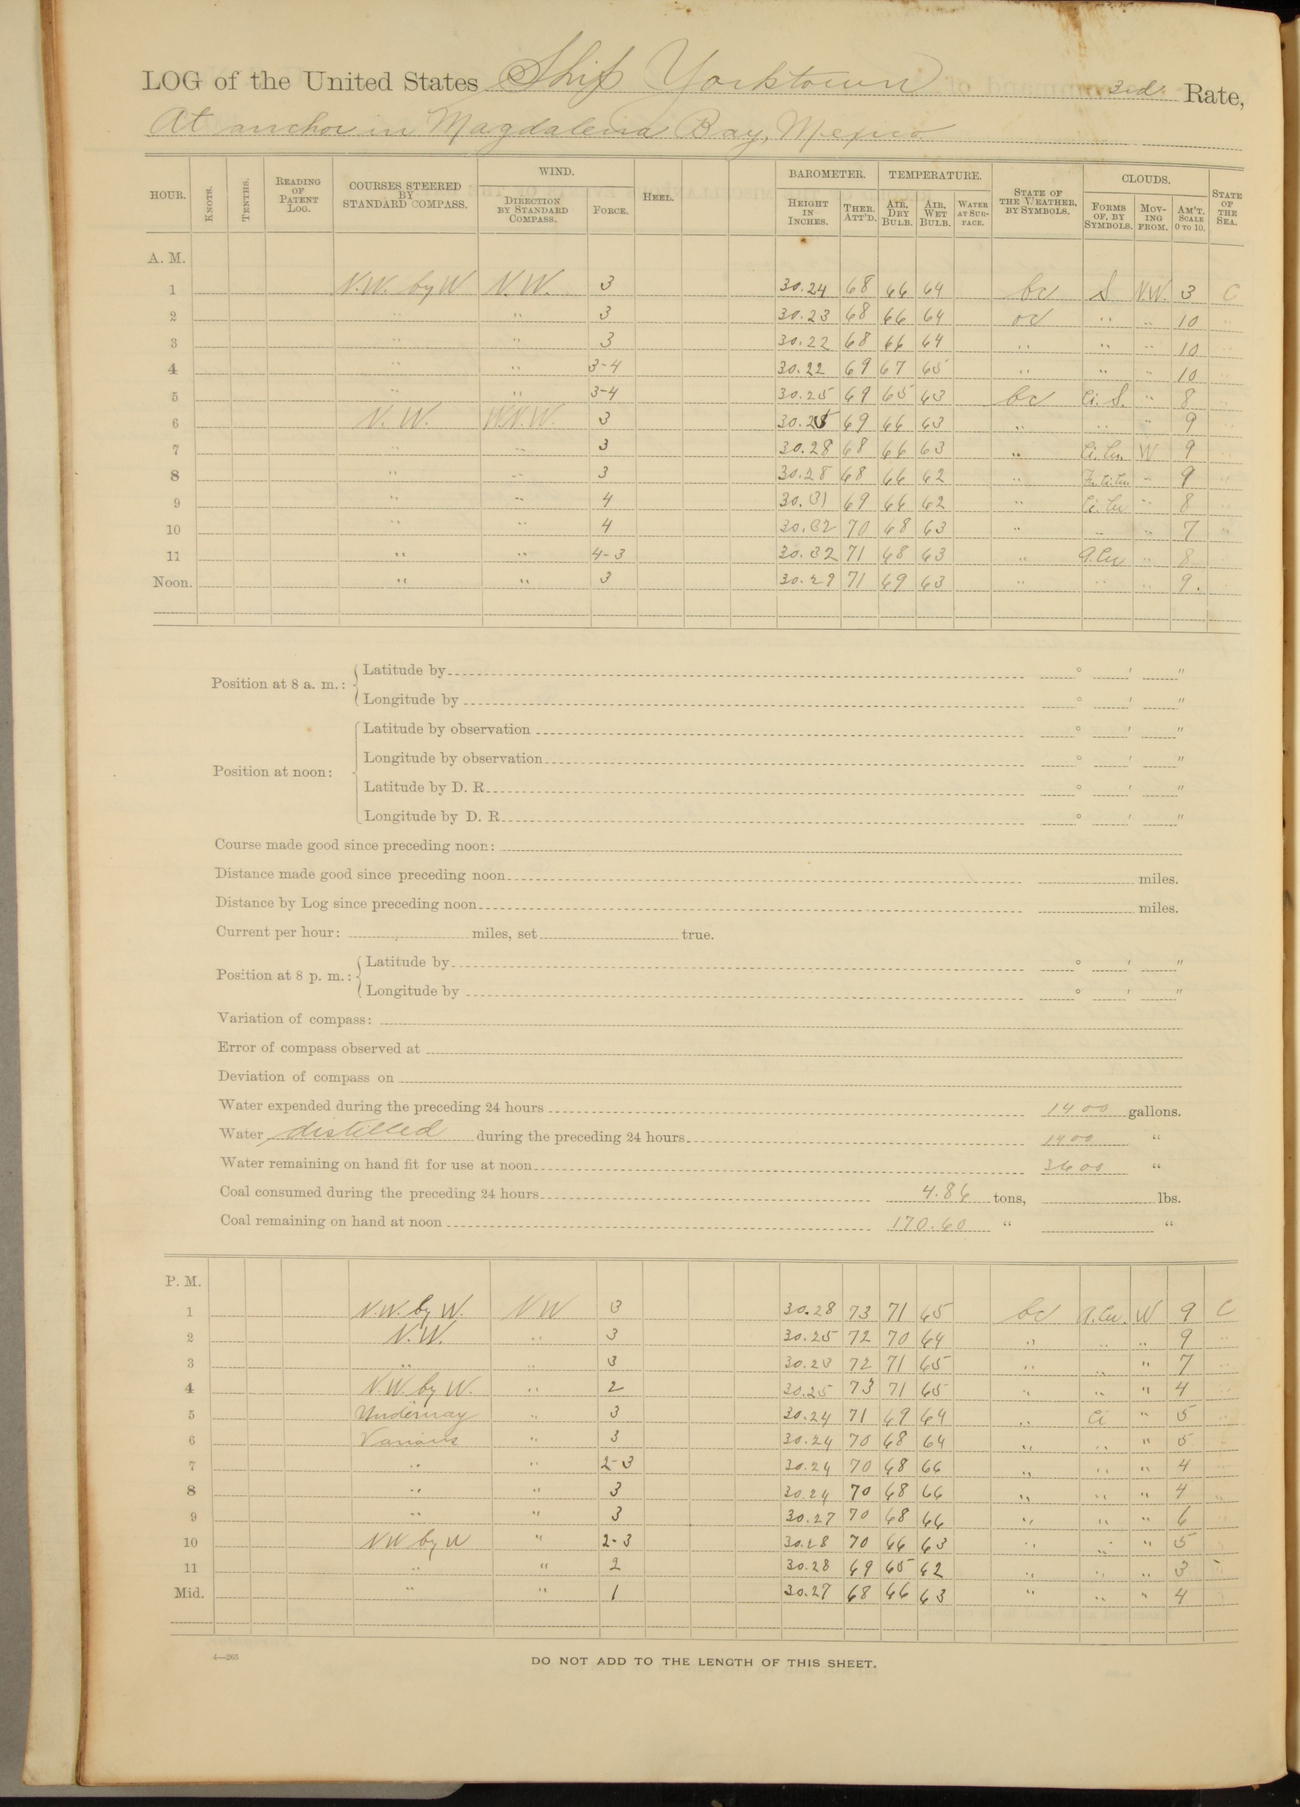 LOG of the United States Ship Yorktown 3rd Rate,
At anchor in Magdalena Bay, Mexico
HOUR. KNOTS. TENTHS. READING OF PATENT LOG. COURSES STEERED BY STANDARD COMPASS. WIND. DIRECTION BY STANDARD COMPASS. FORCE. HEEL. BAROMETER. HEIGHT IN INCHES. THER. ATT'D. TEMPERATURE. AIR, DRY BULB. AIR, WET BULB. WATER AT SURFACE. STATE OF THE WEATHER, BY SYMBOLS. CLOUDS. FORMS OF, BY SYMBOLS. MOVING FROM. AM'T. SCALE 0 TO 10. STATE OF THE SEA.
A. M.
1 N.W. by W N.W. 3 30.24 68 66 64 bc S N.W. 3 C
2 " " 3 30.23 68 66 64 oc " " 10 "
3 " " 3 30.22 68 66 64 " " " 10 "
4 " " 3-4 30.22 69 67 65 " " " 10 "
5 " " 3-4 30.25 69 65 63 bc Ci. S. " 8 "
6 N. W. W.N.W. 3 30.25 69 66 63 " " " 9 "
7 " " 3 30.28 68 66 63 " Ci. Cu. W 9 "
8 " " 3 30.28 68 66 62 " " 9 "
9 " " 4 30.31 69 66 62 " Ci. Cu " 8 "
10 " " 4 30.32 70 68 63 " " " 7 "
11 " " 4-3 30.32 71 68 63 " A.Cu " 8 "
Noon. " " 3 30.29 71 69 63 " " " 9.
Position at 8 a. m.: Latitude by ° ′ ″
Longitude by ° ′ ″
Position at noon: Latitude by observation ° ′ ″
Longitude by observation ° ′ ″
Latitude by D. R. ° ′ ″
Longitude by D. R. ° ′ ″
Course made good since preceding noon:
Distance made good since preceding noon miles.
Distance by Log since preceding noon miles.
Current per hour: miles, set true.
Position at 8 p. m.: Latitude by ° ′ ″
Longitude by ° ′ ″
Variation of compass:
Error of compass observed at
Deviation of compass on
Water expended during the preceding 24 hours 1400 gallons.
Water distilled during the preceding 24 hours 1400 "
Water remaining on hand fit for use at noon 3600 "
Coal consumed during the preceding 24 hours 4.86 tons, lbs.
Coal remaining on hand at noon 170.60 " "
P. M.
1 N.W. by W. N W 3 30.28 73 71 65 bc A.Cu. W 9 C
2 N.W. " 3 30.25 72 70 64 " " " 9 "
3 " " 3 30.23 72 71 65 " " " 7 "
4 N W by W. " 2 30.25 73 71 65 " " " 4 "
5 Underway " 3 30.24 71 69 64 " Ci " 5 "
6 Various " 3 30.24 70 68 64 " " " 5 "
7 " " 2-3 30.24 70 68 66 " " " 4 "
8 " " 3 30.24 70 68 66 " " " 4 "
9 " " 3 30.27 70 68 66 " " " 6 "
10 NW by W " 2-3 30.28 70 66 63 " " " 5 "
11 " " 2 30.28 69 65 62 " " " 3 "
Mid. " " 1 30.27 68 66 63 " " " 4 "
4—265
DO NOT ADD TO THE LENGTH OF THIS SHEET.